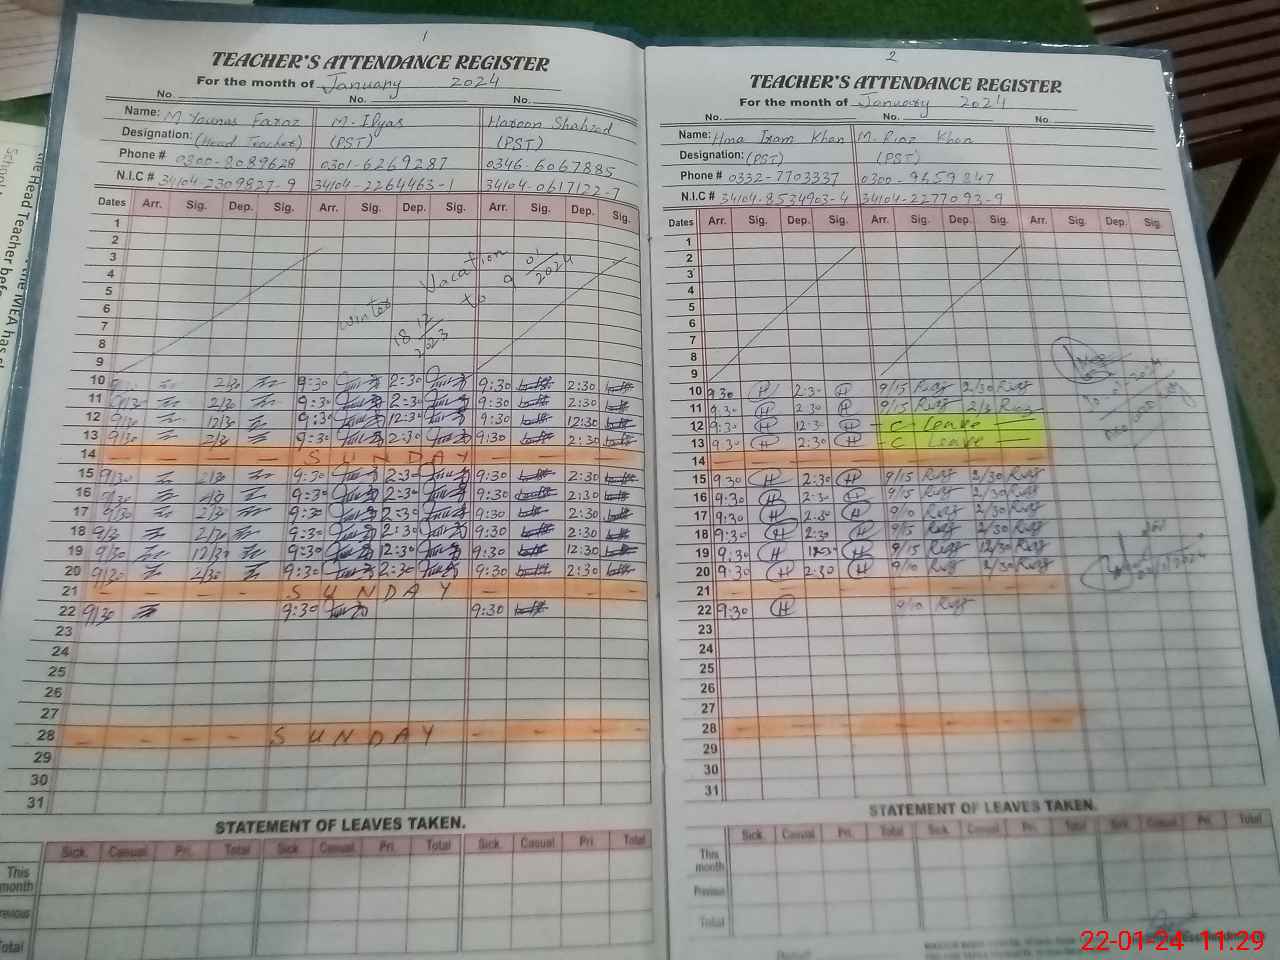 1
TEACHER'S ATTENDANCE REGISTER
For the month of January 2024
No. No. No.
Name: M Younas Faraz M. Ilyas Haroon Shahzad
Designation: (Head Teacher) (PST) (PST)
Phone # 0300-2089628 0301-6269287 0346-6067885
N.I.C # 34104-2309827-9 34104-2264463-1 34104-0617122-7
Dates Arr. Sig. Dep. Sig. Arr. Sig. Dep. Sig. Arr. Sig. Dep. Sig.
1
2
3
4
5
6
7
8
9
Winter Vacation
18 12/2023 to 9 01/2024
10 9/30 2/30 9:30 2:30 9:30 2:30
11 9/30 2/30 9:30 2:30 9:30 2:30
12 9/30 12/30 9:30 12:30 9:30 12:30
13 9/30 2/30 9:30 2:30 9:30 2:30
14 SUNDAY
15 9/30 2/30 9:30 2:30 9:30 2:30
16 9/30 9:30 2:30 9:30 2:30
17 9/30 2/30 9:30 2:30 9:30 2:30
18 9/30 2/30 9:30 2:30 9:30 2:30
19 9/30 12/30 9:30 12:30 9:30 12:30
20 9/30 2/30 9:30 2:30 9:30 2:30
21 SUNDAY
22 9/30 9:30 9:30
23
24
25
26
27
28 SUNDAY
29
30
31
STATEMENT OF LEAVES TAKEN.
Sick. Casual Pri. Total Sick Casual Pri. Total Sick Casual Pri. Total
This month
revious
Total
2
TEACHER'S ATTENDANCE REGISTER
For the month of January 2024
No. No. No.
Name: Hma Iram Khan M. Riaz Khan
Designation: (PST) (PST)
Phone # 0332-7703337 0300-9659847
N.I.C # 34104-8534903-4 34104-2277093-9
Dates Arr. Sig. Dep. Sig. Arr. Sig. Dep. Sig. Arr. Sig. Dep. Sig.
1
2
3
4
5
6
7
8
9
10 9:30 H 2:30 H 9/15 Riaz 2/30 Riaz
11 9:30 H 2:30 H 9/15 Riaz 2/30 Riaz
12 9:30 H 12:30 H - C - Leave -
13 9:30 H 2:30 H - C Leave -
14
15 9:30 H 2:30 H 9/15 Riaz 2/30 Riaz
16 9:30 H 2:30 H 9/15 Riaz 2/30 Riaz
17 9:30 H 2:30 H 9/10 Riaz 2/30 Riaz
18 9:30 H 2:30 H 9/15 Riaz 2/30 Riaz
19 9:30 H 12:30 H 9/15 Riaz 12/30 Riaz
20 9:30 H 2:30 H 9/10 Riaz 2/30 Riaz
21
22 9:30 H 9/10 Riaz
23
24
25
26
27
28
29
30
31
STATEMENT OF LEAVES TAKEN.
Sick. Casual Pri. Total Sick. Casual Pri. Total Sick. Casual Pri. Total
This month
Previous
Total
22-01-24 11:29